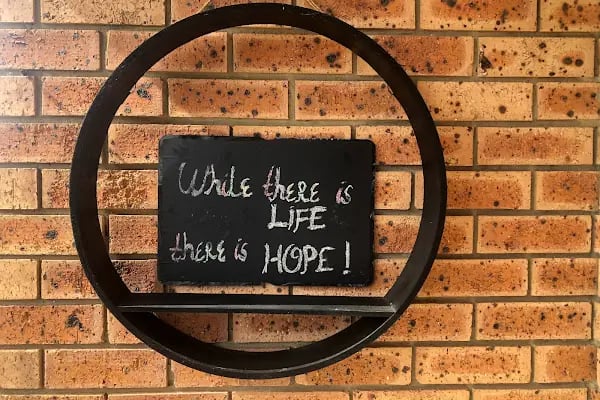 While there is
LIFE
there is HOPE!